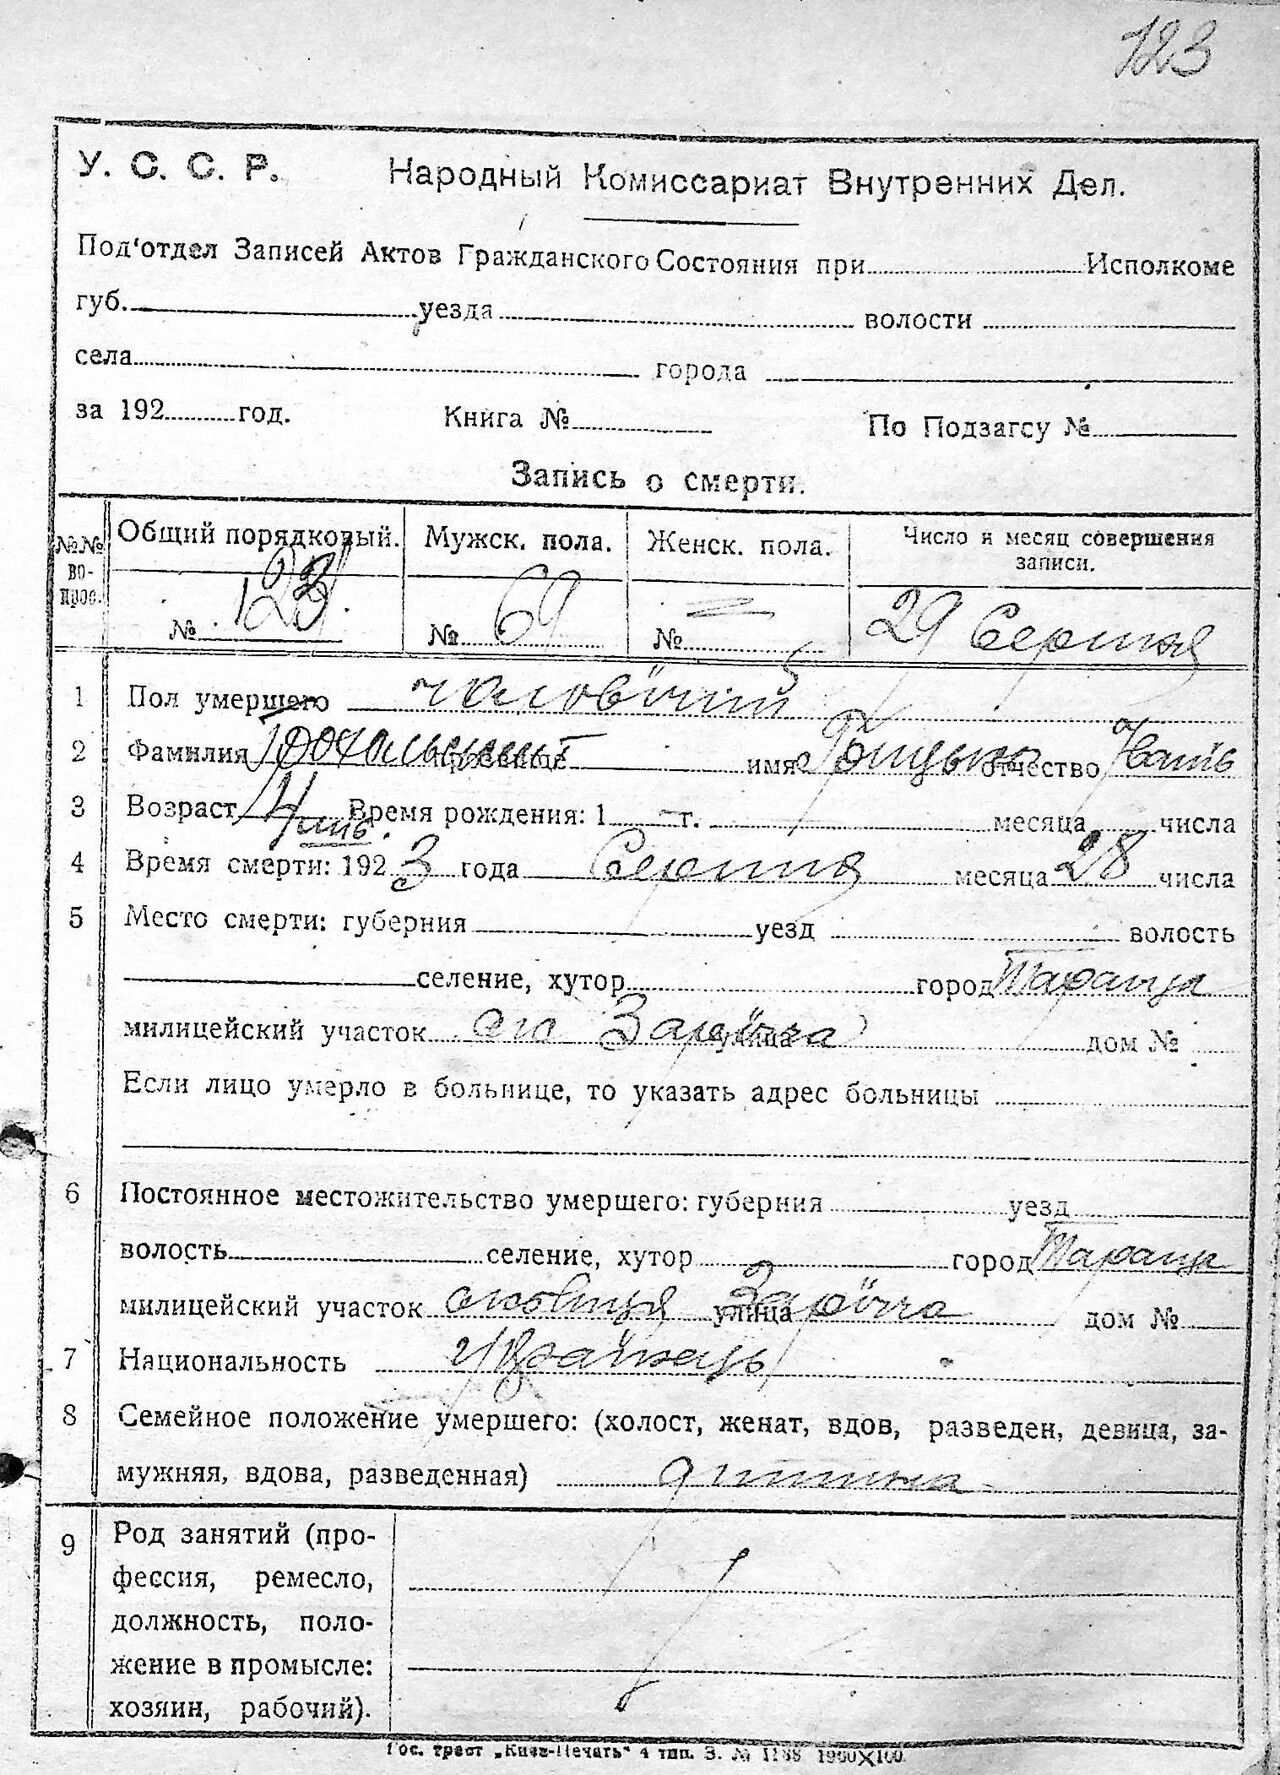 123
У. С. С. Р. Народный Комиссариат Внутренних Дел.
Под'отдел Записей Актов Гражданского Состояния при Исполкоме
губ. уезда волости
села города
за 192 год. Книга № По Подзагсу №
Запись о смерти.
№№ во-прос. Общий порядковый. Мужск. пола. Женск. пола. Число и месяц совершения записи.
№ 123 № 69 № 29 Серпня
1 Пол умершего чоловічий
2 Фамилия имя отчество
3 Возраст 14 Время рождения: 1 г. месяца числа
4 Время смерти: 1923 года Серпня месяца 28 числа
5 Место смерти: губерния уезд волость
селение, хутор город Тараща
милицейский участок Зарічча улица дом №
Если лицо умерло в больнице, то указать адрес больницы
6 Постоянное местожительство умершего: губерния уезд
волость селение, хутор город Тараща
милицейский участок околиця улица Зарічча дом №
7 Национальность Українець
8 Семейное положение умершего: (холост, женат, вдов, разведен, девица, за-
мужняя, вдова, разведенная) дитина
9 Род занятий (про-
фессия, ремесло,
должность, поло-
жение в промысле:
хозяин, рабочий).
Гос. трест „Киев-Печать" 4 тип. З. № 1188 1900×100.